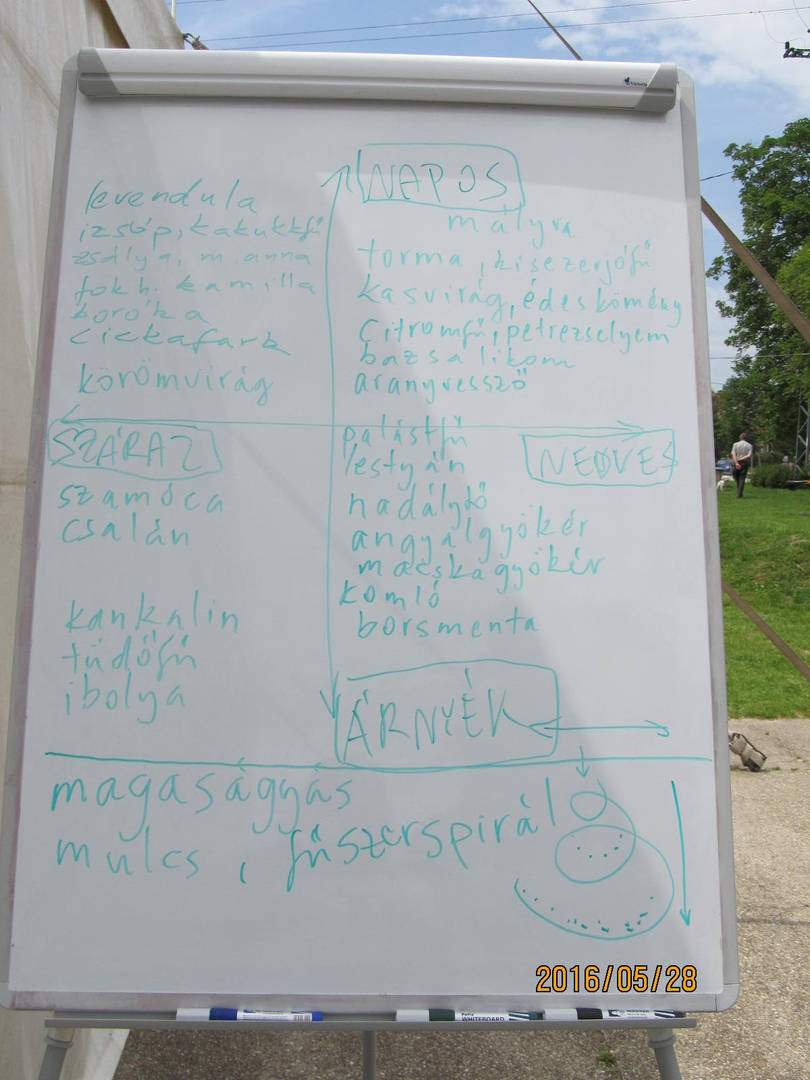 NAPOS
levendula
izsóp, kakukkfű
zsálya, m. anna
fokh. kamilla
boróka
cickafark
körömvirág
mályva
torma, kisezerjófű
kasvirág, édeskömény
citromfű, petrezselyem
bazsalikom
aranyvessző
SZÁRAZ
szamóca
csalán
kankalin
tüdőfű
ibolya
NEDVES
palástfű
lestyán
nadálytő
angyalgyökér
macskagyökér
komló
borsmenta
ÁRNYÉK
magaságyás
mulcs, fűszerspirál
2016/05/28
WHITEBOARD